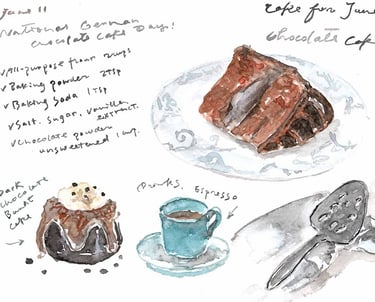 June 11
National German
Chocolate Cake Day!
✓All-purpose flour 2cups
✓Baking powder 2TSP
✓Baking Soda 1TSP
✓Salt, Sugar, Vanilla
extract.
✓Chocolate powder
unsweetened 1 cup.
Cake for June
Chocolate Cake
Dark
chocolate
Bundt
Cake
Drinks.
Espresso